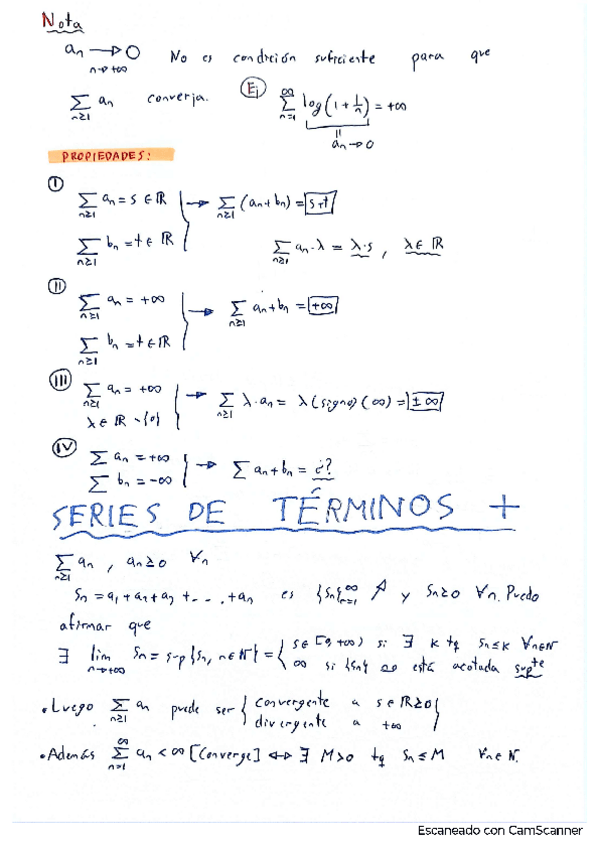 Nota
an → 0 No es condición suficiente para que
n→+∞
∑ an converja. Ej ∑ log(1+1/n) = +∞
n≥1 n=1 ∞
an → 0
PROPIEDADES:
I
∑ an = s ∈ ℝ
n≥1
∑ bn = t ∈ ℝ
n≥1
→ ∑ (an+bn) = s+t
n≥1
∑ an·λ = λ·s , λ∈ ℝ
n≥1
II
∑ an = +∞
n≥1
∑ bn = t ∈ ℝ
n≥1
→ ∑ an+bn = +∞
n≥1
III
∑ an = +∞
n≥1
λ ∈ ℝ -{0}
→ ∑ λ·an = λ(signo)(∞) = ±∞
n≥1
IV
∑ an = +∞
∑ bn = -∞
→ ∑ an+bn = ¿?
SERIES DE TÉRMINOS +
∑ an , an≥0 ∀n
n≥1
Sn = a1+a2+a3+...+an es {Sn}∞n=1 ↗ y Sn≥0 ∀n. Puedo
afirmar que
∃ lim Sn = sup{Sn, n∈ℕ} = { s∈[0,+∞) si ∃ k tq Sn≤k ∀n∈ℕ
n→+∞
∞ si {Sn} no está acotada supte
•Luego ∑ an puede ser { convergente a s∈ℝ≥0
n≥1
divergente a +∞ }
•Además ∑ an < ∞ [Converge] ↔ ∃ M>0 tq Sn≤M ∀n∈ℕ.
n=1 ∞
Escaneado con CamScanner